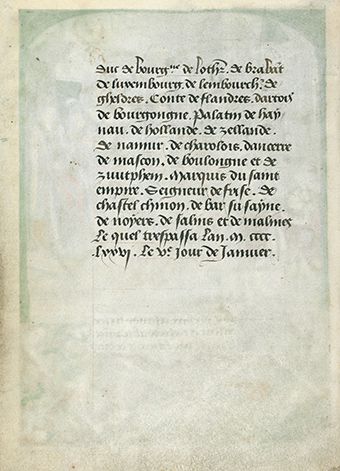 duc de bourgne de lothr. de brabāt
de luxembourg. de lembourch. de
gheldres. Conte de flandres. dartois
de bourgongne. Palatin de hay
nau. de hollande. de zellande.
de namur. de charolois. dancerre
de mascon. de boulongne et de
zuutphem. Marquis du saint
empire. Seigneur de frise. de
chastel chinon. de bar su sayne.
de noyers. de salins et de malines
le quel trespassa lan. M. cccc.
lxxvi. le Ve jour de Janvier.